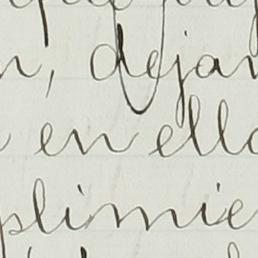 n, dejan
en ella
plimie